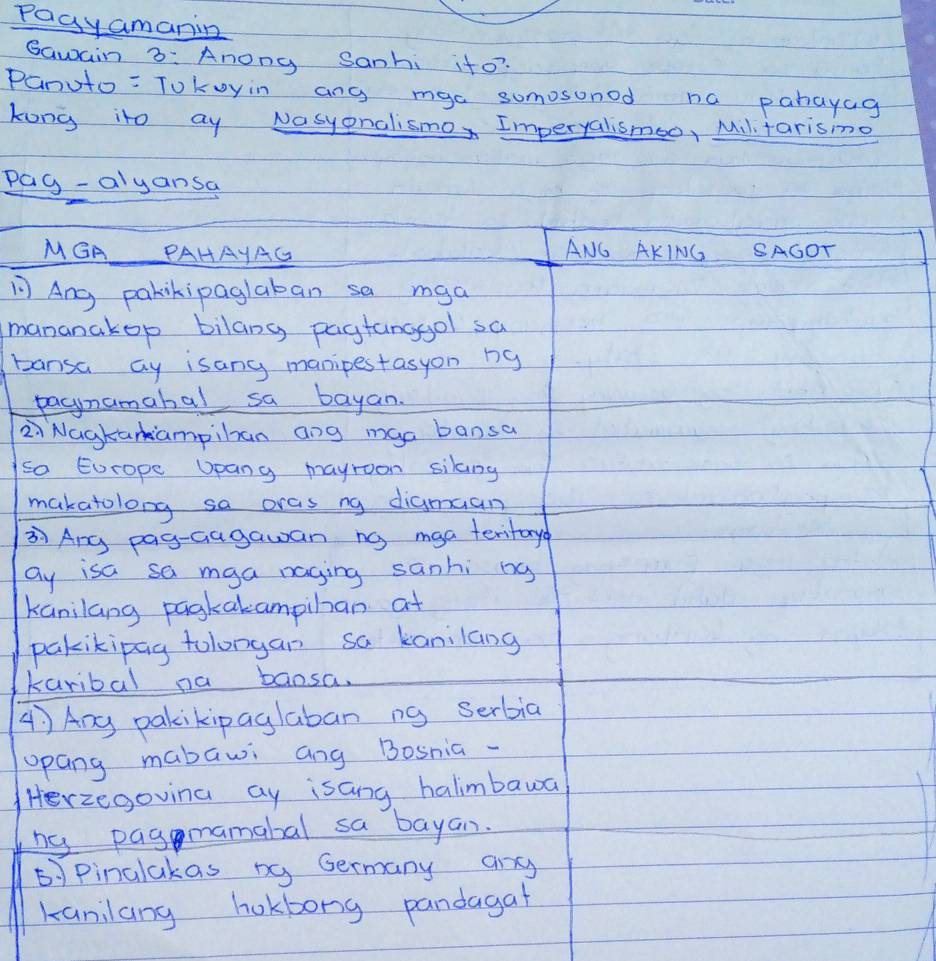 Pagyamanin
Gawain 3: Anong Sanhi ito?
Panuto: Tukuyin ang mga sumosunod na pahayag
kung ito ay Nasyonalismo, Imperyalismo, Militarismo
Pag-alyansa
MGA PAHAYAG
ANG AKING SAGOT
1.) Ang pakikipaglaban sa mga
mananakop bilang pagtanggol sa
bansa ay isang manipestasyon ng
pagmamahal sa bayan.
2.) Nagkakampihan ang mga bansa
sa Europe Upang mayroon silang
makatulong sa oras ng digmaan
3.) Ang pag-aagawan ng mga teritoryo
ay isa sa mga naging sanhi ng
kanilang pagkakampihan at
pakikipag tulungan sa kanilang
karibal na bansa.
4.) Ang pakikipaglaban ng Serbia
upang mabawi ang Bosnia -
Herzegovina ay isang halimbawa
ng pagmamahal sa bayan.
5.) Pinalakas ng Germany ang
kanilang hukbong pandagat